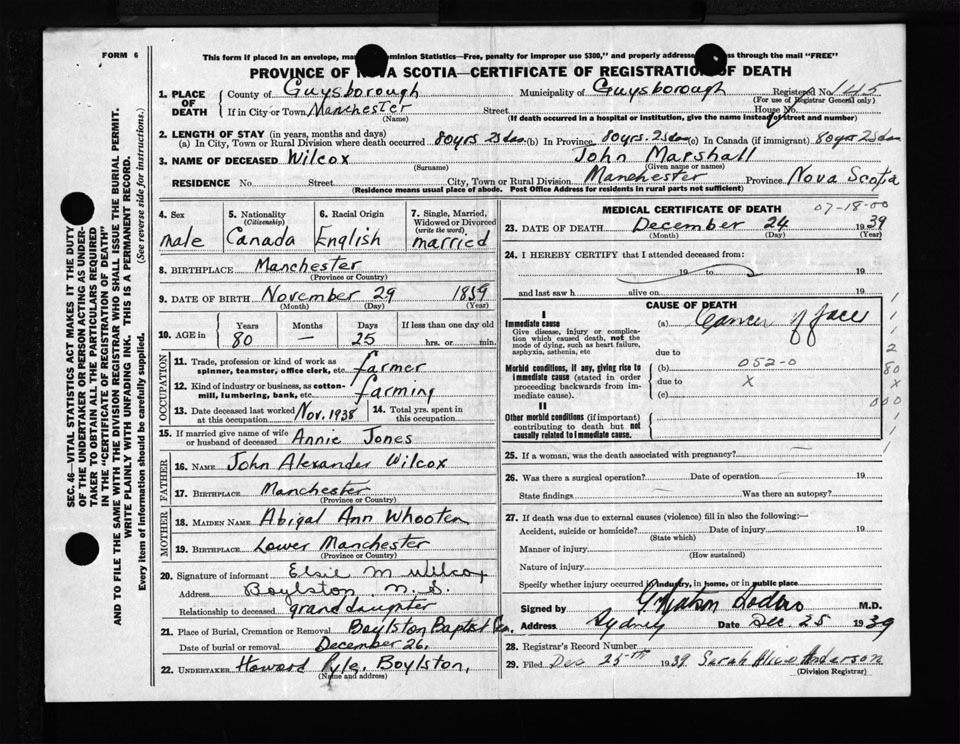 FORM 6
This form if placed in an envelope, ma minion Statistics—Free, penalty for improper use $300," and properly addresse ss through the mail "FREE"
PROVINCE OF NOVA SCOTIA—CERTIFICATE OF REGISTRATION OF DEATH
1. PLACE OF DEATH
County of Guysborough Municipality of Guysborough Registered No. 145
(For use of Registrar General only)
If in City or Town Manchester Street House No.
(Name) (If death occurred in a hospital or institution, give the name instead of street and number)
2. LENGTH OF STAY (in years, months and days)
(a) In City, Town or Rural Division where death occurred 80yrs 25das (b) In Province 80yrs. 25das (c) In Canada (if immigrant) 80yrs 25das
3. NAME OF DECEASED Wilcox John Marshall
(Surname) (Given name or names)
RESIDENCE No. Street City, Town or Rural Division Manchester Province Nova Scotia
(Residence means usual place of abode. Post Office Address for residents in rural parts not sufficient)
4. Sex male
5. Nationality (Citizenship) Canada
6. Racial Origin English
7. Single, Married, Widowed or Divorced (write the word) married
8. BIRTHPLACE Manchester
(Province or Country)
9. DATE OF BIRTH November 29 1859
(Month) (Day) (Year)
10. AGE in Years 80 Months — Days 25 If less than one day old hrs. or min.
OCCUPATION
11. Trade, profession or kind of work as spinner, teamster, office clerk, etc. farmer
12. Kind of industry or business, as cotton-mill, lumbering, bank, etc. farming
13. Date deceased last worked at this occupation Nov. 1938
14. Total yrs. spent in this occupation
15. If married give name of wife or husband of deceased Annie Jones
FATHER
16. NAME John Alexander Wilcox
17. BIRTHPLACE Manchester
(Province or Country)
MOTHER
18. MAIDEN NAME Abigal Ann Whooten
19. BIRTHPLACE Lower Manchester
(Province or Country)
20. Signature of informant Elsie M Wilcox
Address Boylston, N.S.
Relationship to deceased granddaughter
21. Place of Burial, Cremation or Removal Boylston Baptist Cem.
Date of burial or removal December 26,
22. UNDERTAKER Howard Pyle, Boylston,
(Name and address)
MEDICAL CERTIFICATE OF DEATH 07-18-00
23. DATE OF DEATH December 24 1939
(Month) (Day) (Year)
24. I HEREBY CERTIFY that I attended deceased from:
19 to 19
and last saw h alive on 19
CAUSE OF DEATH
I
Immediate cause
Give disease, injury or complication which caused death, not the mode of dying, such as heart failure, asphyxia, asthenia, etc
(a) Cancer of face
due to
Morbid conditions, if any, giving rise to immediate cause (stated in order proceeding backwards from immediate cause).
(b) 052-0
due to X
(c)
II
Other morbid conditions (if important) contributing to death but not causally related to immediate cause.
1
1
1
2
80
x
000
1
1
1
25. If a woman, was the death associated with pregnancy?
26. Was there a surgical operation? Date of operation 19
State findings Was there an autopsy?
27. If death was due to external causes (violence) fill in also the following:—
Accident, suicide or homicide? Date of injury 19
(State which)
Manner of injury
(How sustained)
Nature of injury
Specify whether injury occurred in industry, in home, or in public place
Signed by M.D.
Address Sydney Date Dec. 25 1939
28. Registrar's Record Number
29. Filed Dec 25th 1939 Sarah Alice Anderson
(Division Registrar)
SEC. 46—VITAL STATISTICS ACT MAKES IT THE DUTY
OF THE UNDERTAKER OR PERSON ACTING AS UNDER-
TAKER TO OBTAIN ALL THE PARTICULARS REQUIRED
IN THE "CERTIFICATE OF REGISTRATION OF DEATH"
AND TO FILE THE SAME WITH THE DIVISION REGISTRAR WHO SHALL ISSUE THE BURIAL PERMIT.
WRITE PLAINLY WITH UNFADING INK. THIS IS A PERMANENT RECORD.
Every item of information should be carefully supplied. (See reverse side for instructions.)